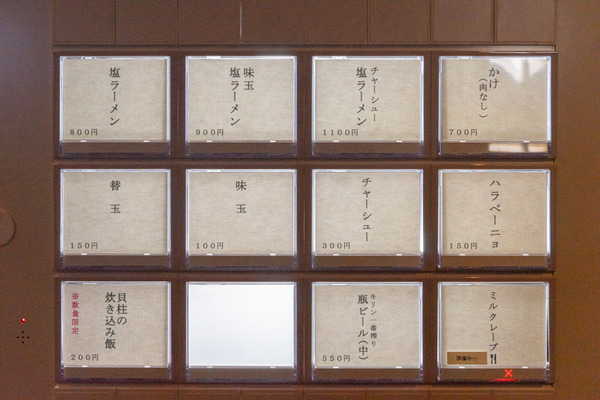 塩ラーメン
800円
味玉
塩ラーメン
900円
チャーシュー
塩ラーメン
1100円
かけ
（肉なし）
700円
替玉
150円
味玉
100円
チャーシュー
300円
ハラペーニョ
150円
貝柱の
炊き込み飯
※数量限定
200円
キリン一番搾り
瓶ビール（中）
550円
ミルクレープ
準備中